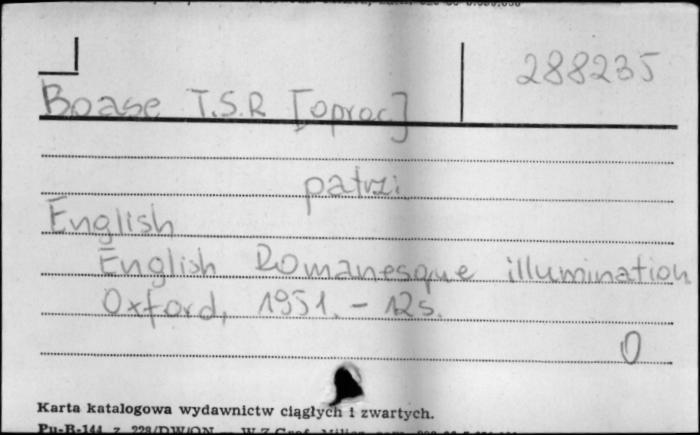 288235
Boase T.S.R [oprac]
patrz:
English
English Romanesque illumination
Oxford, 1951. - 12 s.
0
Karta katalogowa wydawnictw ciągłych i zwartych.
Pu-R-144 z. 228/DW/ON